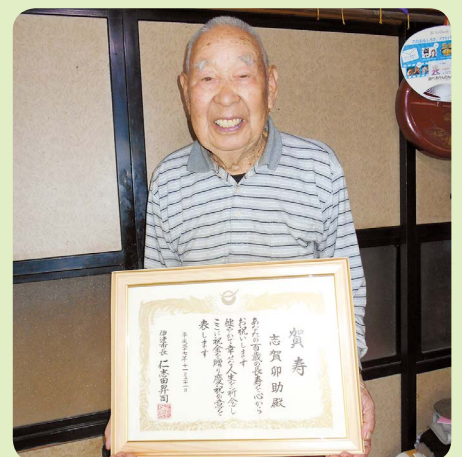 賀寿
志賀卯助殿
あなたの百歳の長寿を心から
お祝いします
健やかで幸せな人生を祈念し
ここに祝金を贈り慶祝の意を
表します
平成二十七年十一月二十一日
伊達市長 仁志田昇司